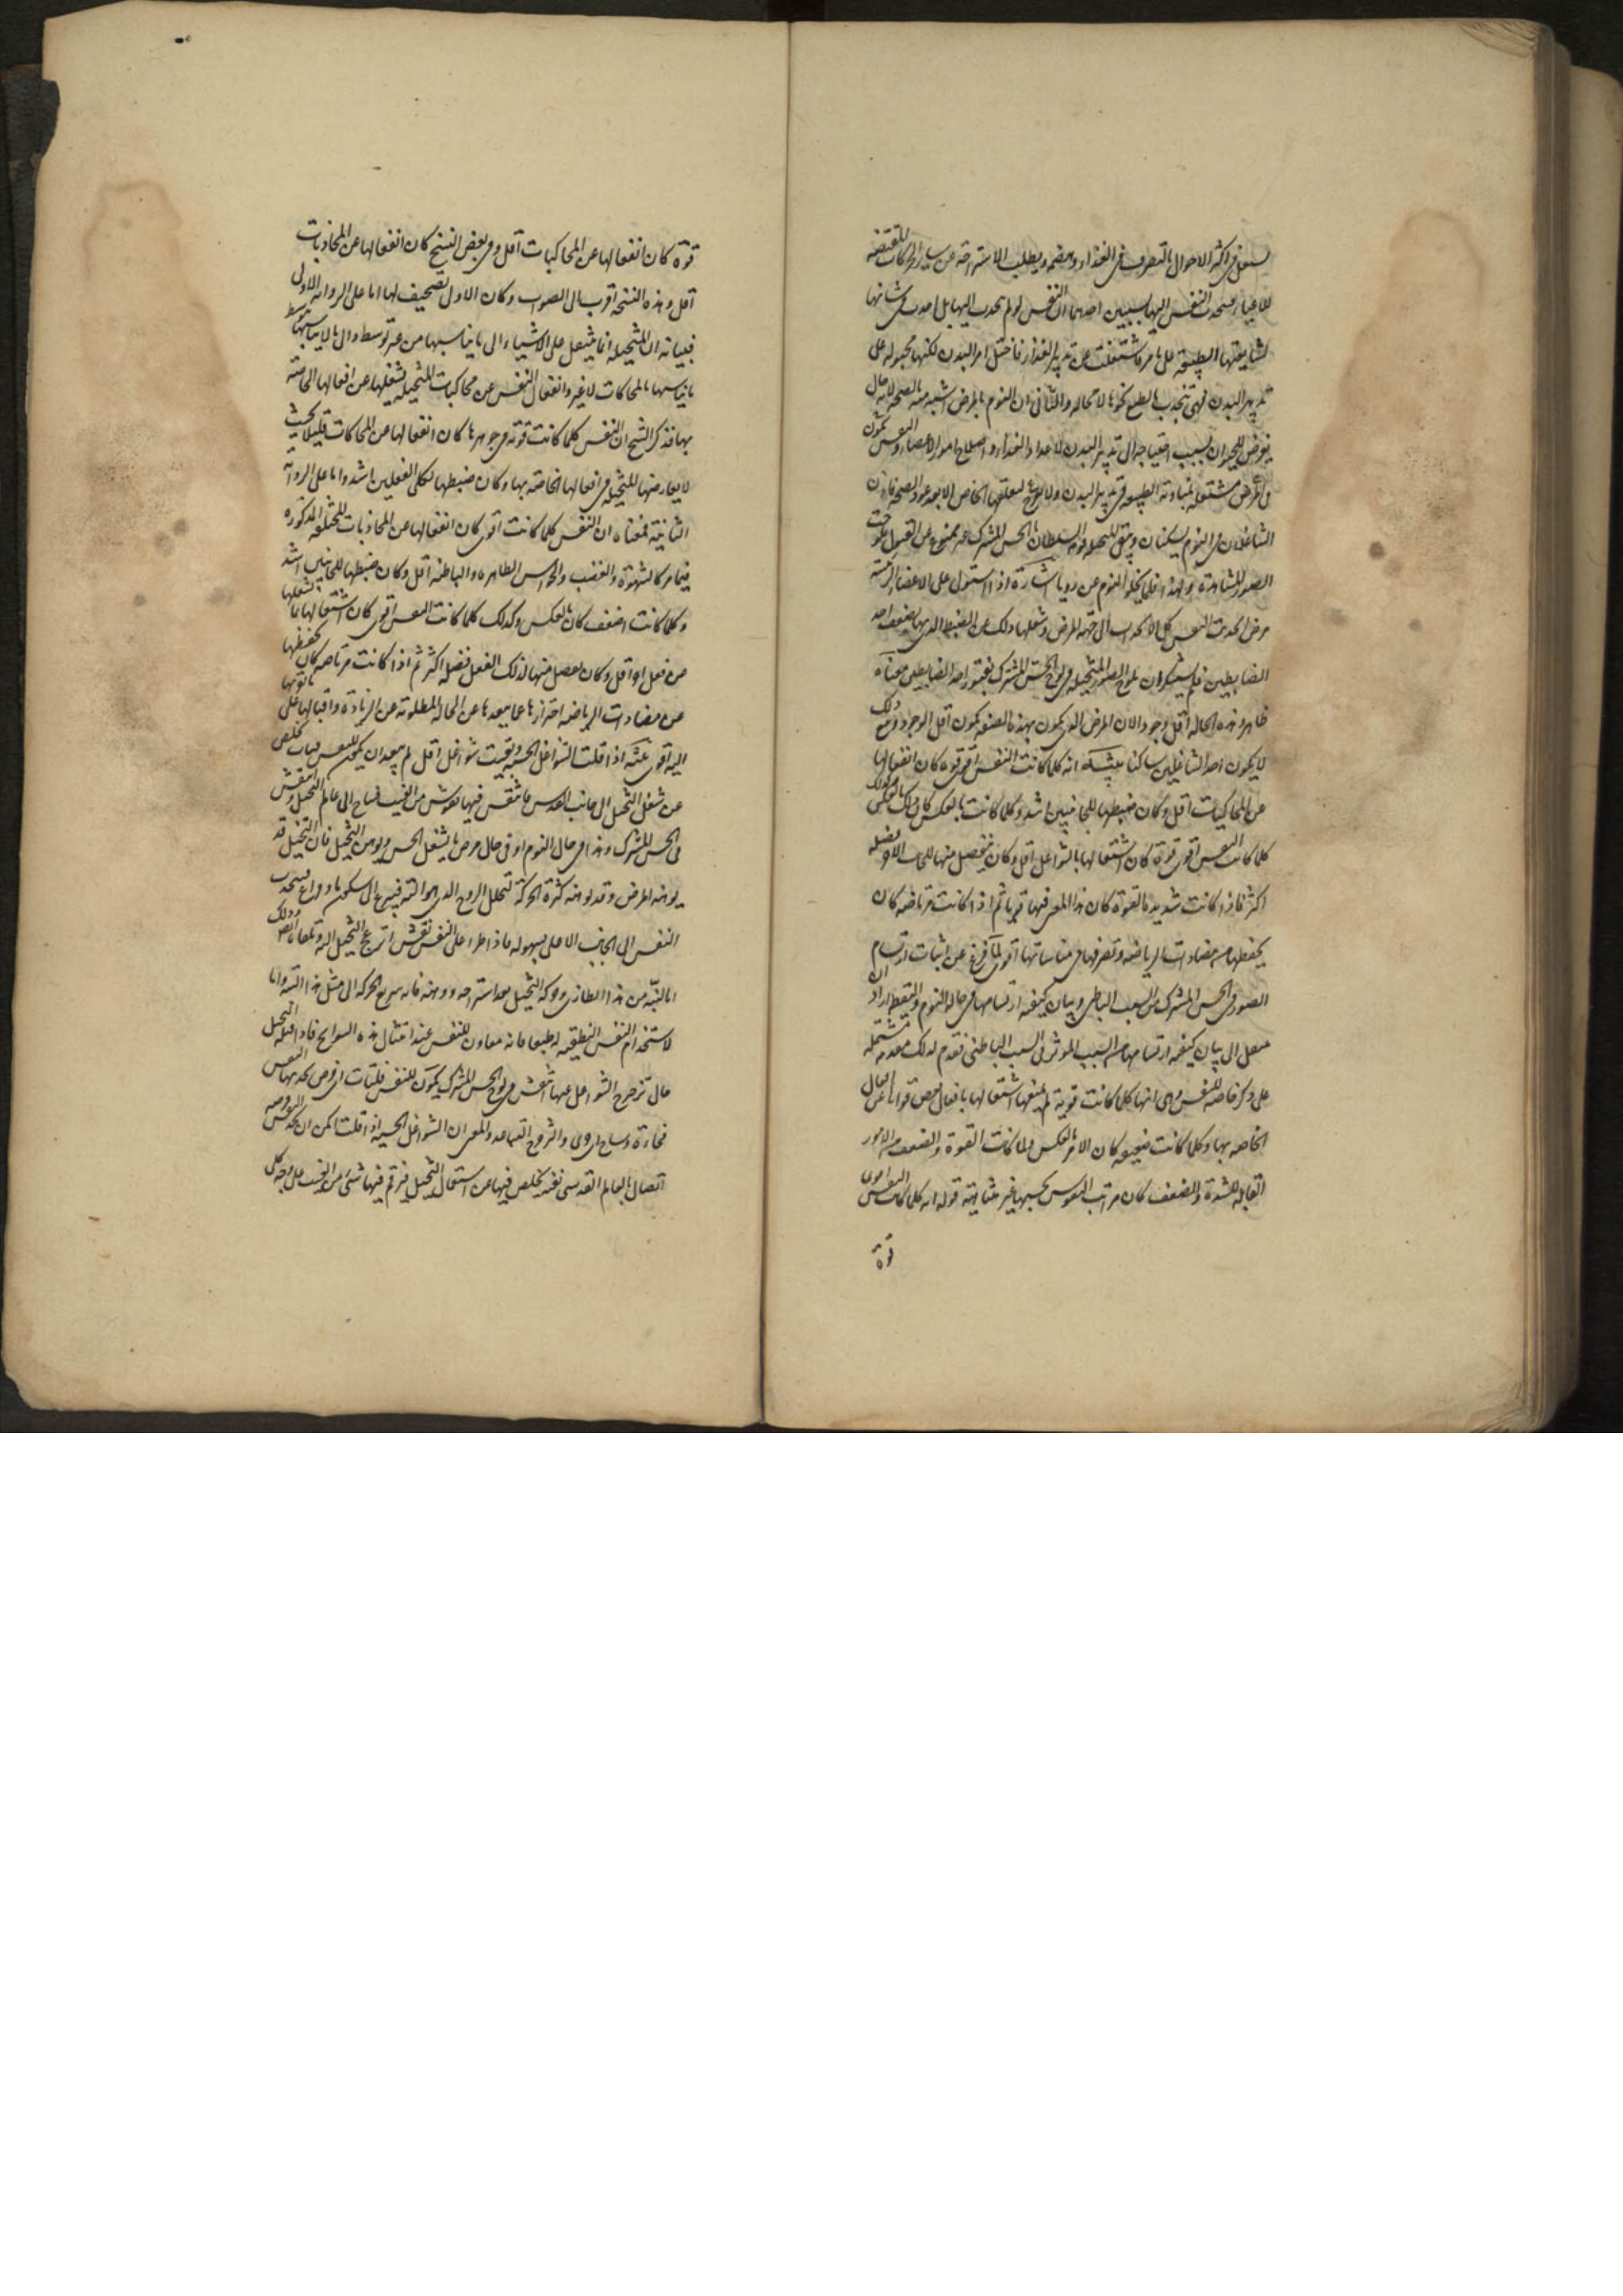 يشتغل فى اكثر الاحوال بالتصرف فى الغذاء وهضمه ويطلب الاستراحة عن ساير الحركات المقتضية
للاعياء فينجذب النفس اليها بسببين احدهما ان النفس لو لم ينجذب اليها بل اخذت فى شانها
لشايعتها الطبيعة على ما مر فاشتغلت عن تدبير الغذاء فاختل امر البدن لكنها مجبولة على
تدبير البدن فهى تنجذب بالطبع نحوها لا محالة والثانى ان النوم بالمرض اشبه منه بالصحة لانه حال
يعرض للحيوان بسبب احتياجه الى تدبير البدن لاعداد الغذاء واصلاح امور الاعضاء والنفس تكون
فى المرض مشتغلة بمعاونة الطبيعة فى تدبير البدن ولا تفرغ لفعلها الخاص الا بعد عود الصحة فاذن
الشاغلان فى النوم يسكنان ويبقى المتخيلة قوية السلطان والحس المشترك غير ممنوع عن القبول فلوحت
الصور مشاهدة ولهذا قلما يخلو النوم عن رويا اشارة اذا استولى على الاعضاء الرئيسة
مرض انجذبت النفس كل الانجذاب الى جهة المرض وشغلها ذلك عن الضبط الذى لها وضعف احد
الضابطين فلم يستنكر ان تلوح الصور المتخيلة فى لوح الحس المشترك لفتور احد الضابطين معناه
ظاهر وهذه الحالة اقل وجودا لان المرض الذى يكون بهذه الصفة يكون اقل الوجود ومع ذلك
لا يكون احد الشاغلين ساكنا تنبيه انه كلما كانت النفس اقوى قوة كان انفعالها
عن المحاكيات اقل وكان ضبطها للجانبين اشد وكلما كانت بالعكس كان ذلك بالعكس وكذلك
كلما كانت النفس اقوى قوة كان اشتغالها بالشواغل اقل وكان يفضل منها للجانب الاخر فضلة
اكثر فاذا كانت شديدة القوة كان هذا المعنى فيها قويا ثم اذا كانت مرتاضة كان
تحفظها من مضادات الرياضة وتصرفها فى مناسباتها اقوى لما فرغ عن اثبات ارتسام
الصور فى الحس المشترك من السبب الباطنى وبيان كيفية ارتسامها فى حالة النوم واليقظة اراد ان
ينتقل الى بيان كيفية ارتسامها من السبب الموثر فى السبب الباطنى فقدم لذلك مقدمة مشتملة
على ذكر خاصة للنفس وهى انها كلما كانت قوية لم يمنعها اشتغالها بافعال بعض قواها عن افعال
الخاصة بها وكلما كانت ضعيفة كان الامر بالعكس ولما كانت القوة والضعف من الامور
القابلة للشدة والضعف كان مراتب النفوس بحسبها غير متناهية قوله انه كلما كانت النفس اقوى
قوة
قوة كان انفعالها عن المحاكيات اقل وفى بعض النسخ كان انفعالها عن المحاذبات
اقل وهذه النسخة اقرب الى الصواب وكان الاول تصحيف لها اما على الرواية الاولى
فبيانه ان المتخيلة انما ينتقل على الاشياء الى ما يناسبها من غير توسط والى ما لا يناسبها بتوسط
ما يناسبها بالمحاكات لا غير وانفعال النفس عن محاكيات المتخيلة يشغلها عن افعالها الخاصة
بها فذكر الشيخ ان النفس كلما كانت قوته فى جوهرها كان انفعالها عن المحاكات قليلا بحيث
لا يعارضها المتخيلة فى افعالها الخاصة بها وكان ضبطها لكلى الفعلين اشد واما على الرواية
الثانية فمعناه ان النفس كلما كانت اقوى كان انفعالها عن المحاذبات المختلفة المذكورة
فيما مر كالشهوة والغضب والحواس الظاهرة والباطنة اقل وكان ضبطها للجانبين اشد
وكلما كانت اضعف كان بالعكس وكذلك كلما كانت النفس اقوى كان اشتغالها بما يشغلها
عن فعل اخر اقل وكان يفضل منها لذلك الفعل فضلة اكثر ثم اذا كانت مرتاضة كان تحفظها
عن مضادات الرياضة احترازها عما يبعدها عن الحالة المطلوبة عن الزيادة واقبالها على ما يقربها
اليه اقوى تنبيه اذا قلت الشواغل الحسية وبقيت شواغل اقل لم يبعد ان يكون للنفس فلتات تخلص
عن شغل التخيل الى جانب القدس فانتقش فيها نقوش من الغيب فساح الى عالم التخيل وانتقش
فى الحس المشترك وهذا فى حال النوم او فى حال مرض ما يشغل الحس ويوهن التخيل فان التخيل قد
يوهنه المرض وقد يوهنه كثرة الحركة لتحلل الروح الذى هو آلته فيسرع الى سكون ما وفراغ ما فينجذب
النفس الى الجانب الاعلى بسهولة فاذا طرا على النفس نقش انزعج التخيل اليه وتلقاه ايضا وذلك
اما لتنبه من هذا الطارى وحركة التخيل بعد استراحته ووهنه فانه سريع الحركة الى مثل هذا التنبه واما
لاستخدام النفس النطقية له طبعا فانه معاون للنفس عند امثال هذه السوانح فاذا قبله التخيل
حال تزحزح الشواغل عنها انتقش فى لوح الحس المشترك يكون للنفس فلتات اى فرص تجدها النفس
فجاءة وساح اى جرى والتزحزح التباعد والمعنى ان الشواغل الحسية اذا قلت امكن ان تجد النفس فرصة
اتصال بالعالم القدسى بغتة تخلص فيها عن استعمال التخيل فيرتسم فيها شئ من الغيب على وجه كلى